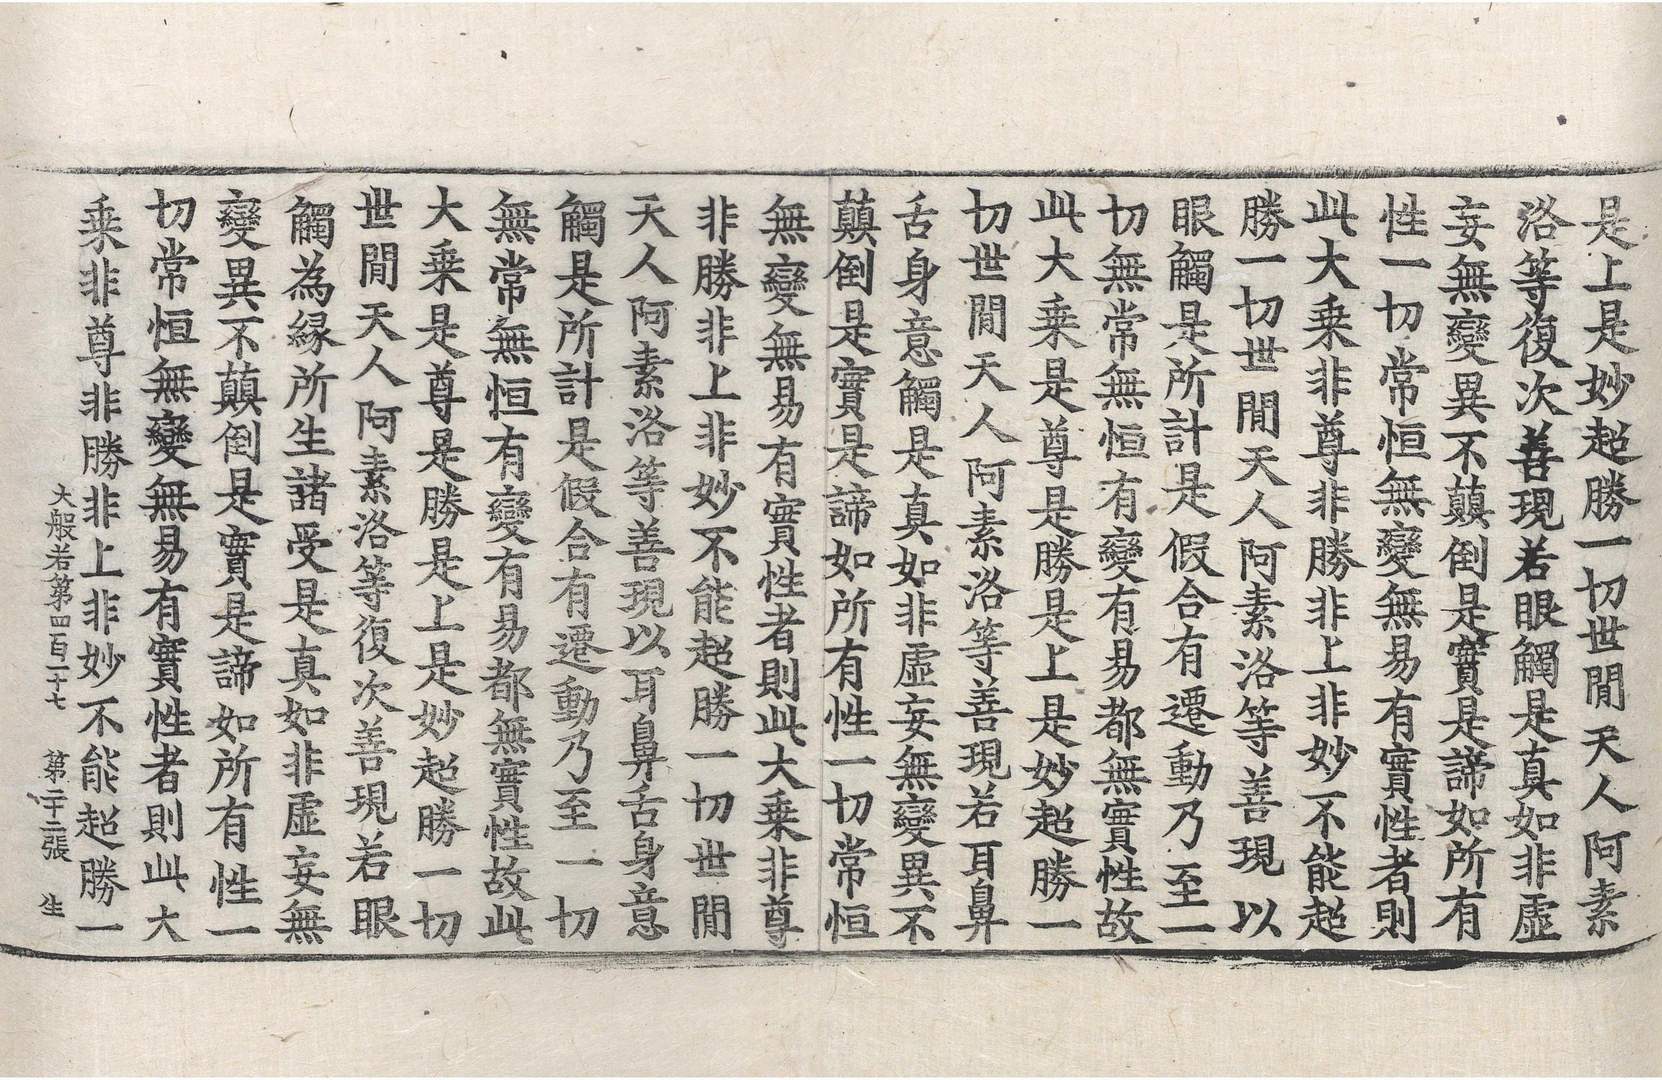 是上是妙超勝一切世閒天人阿素
洛等復次善現若眼觸是真如非虛
妄無變異不顛倒是實是諦如所有
性一切常恒無變無易有實性者則
此大乘非尊非勝非上非妙不能超
勝一切世閒天人阿素洛等善現以
眼觸是所計是假合有遷動乃至一
切無常無恒有變有易都無實性故
此大乘是尊是勝是上是妙超勝一
切世閒天人阿素洛等善現若耳鼻
舌身意觸是真如非虛妄無變異不
顛倒是實是諦如所有性一切常恒
無變無易有實性者則此大乘非尊
非勝非上非妙不能超勝一切世閒
天人阿素洛等善現以耳鼻舌身意
觸是所計是假合有遷動乃至一切
無常無恒有變有易都無實性故此
大乘是尊是勝是上是妙超勝一切
世閒天人阿素洛等復次善現若眼
觸為緣所生諸受是真如非虛妄無
變異不顛倒是實是諦如所有性一
切常恒無變無易有實性者則此大
乘非尊非勝非上非妙不能超勝一
大般若第四百一十七 第二十二張 生